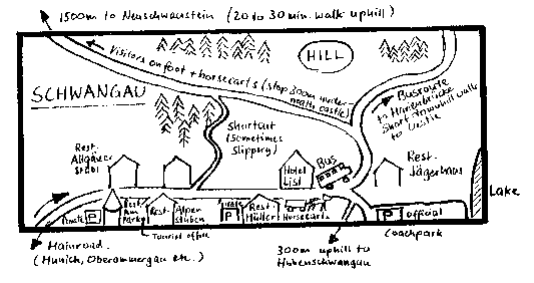 1500m to Neuschwanstein (20 to 30 min. walk uphill)
Visitors on foot + horsecarts (stop 300m under-
neath castle)
HILL
SCHWANGAU
Busroute
to Marienbrücke
Short downhill walk
to castle
Shortcut
(Sometimes
Slippery)
Rest.
Allgäuer
Stübl
Hotel
Lisl
Bus
Rest.
Jägerhaus
Lake
Private
P
Rest.
Am
Park
Rest.
Alpen
stuben
P
Rest.
Müller
Horsecarts
P
official
Coachpark
Tourist office
Mainroad
(Munich, Oberammergau etc.)
300m uphill to
Hohenschwangau